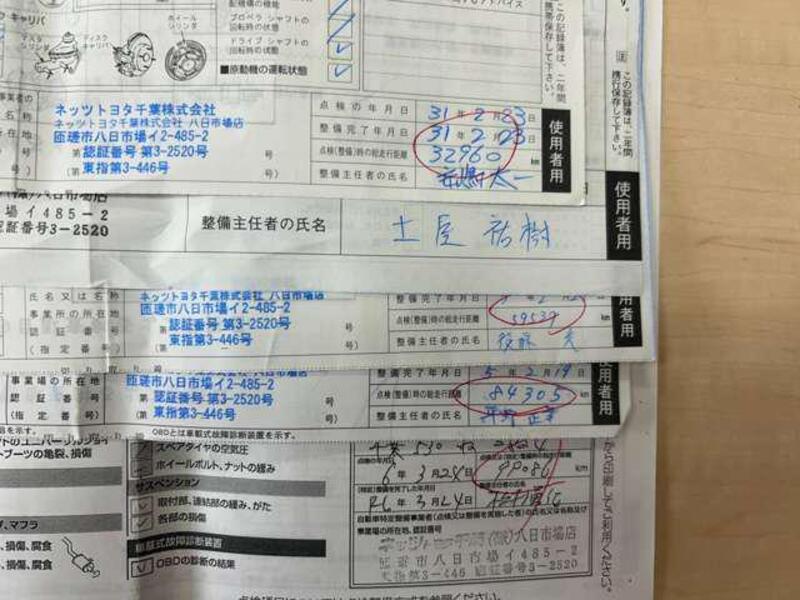 キャリパ
ディスク
キャリパ
ホイール
シリンダ
プロペラ シャフトの
回転時の状態
ドライブ シャフトの
回転時の状態
■原動機の運転状態
この記録簿は、二年間
携帯保存して下さい。
ネッツトヨタ千葉株式会社
ネッツトヨタ千葉株式会社 八日市場店
匝瑳市八日市場イ2-485-2
(第 認証番号 第3-2520号 号)
東指第3-446号
点検の年月日 31年2月23日
整備完了年月日 31年2月23日
点検(整備)時の総走行距離 32960 km
整備主任者の氏名
使用者用
この記録簿は、二年間
携行保存して下さい。
場イ485-2
認証番号3-2520
整備主任者の氏名 土屋 祐樹
使用者用
氏名又は名称 ネッツトヨタ千葉株式会社 八日市場店
事業場の所在地 匝瑳市八日市場イ2-485-2
認証番号 (第 認証番号 第3-2520号 号)
(指定番号) 東指第3-446号
整備完了年月日
点検(整備)時の総走行距離 59539 km
整備主任者の氏名
使用者用
事業場の所在地 匝瑳市八日市場イ2-485-2
認証番号 (第 認証番号 第3-2520号 号)
(指定番号) 東指第3-446号
整備完了年月日 5年2月19日
点検(整備)時の総走行距離 84305 km
整備主任者の氏名
使用者用
OBDとは車載式故障診断装置を示す。
ブーツの亀裂、損傷
スペアタイヤの空気圧
ホイールボルト、ナットの緩み
サスペンション
取付部、連結部の緩み、がた
各部の損傷
車載式故障診断装置
OBDの診断の結果
、マフラ
、損傷、腐食
、損傷、腐食
千葉 530
点検の年月日
6年3月24日
99086 km
R6年3月24日
自動車特定整備事業者(点検又は整備を実施した者)の氏名又は名称及び
事業場の所在地、認証番号
八日市場店
匝瑳市八日市場イ485-2
東指第3-446 認証番号3-2520
から印刷してご利用ください。